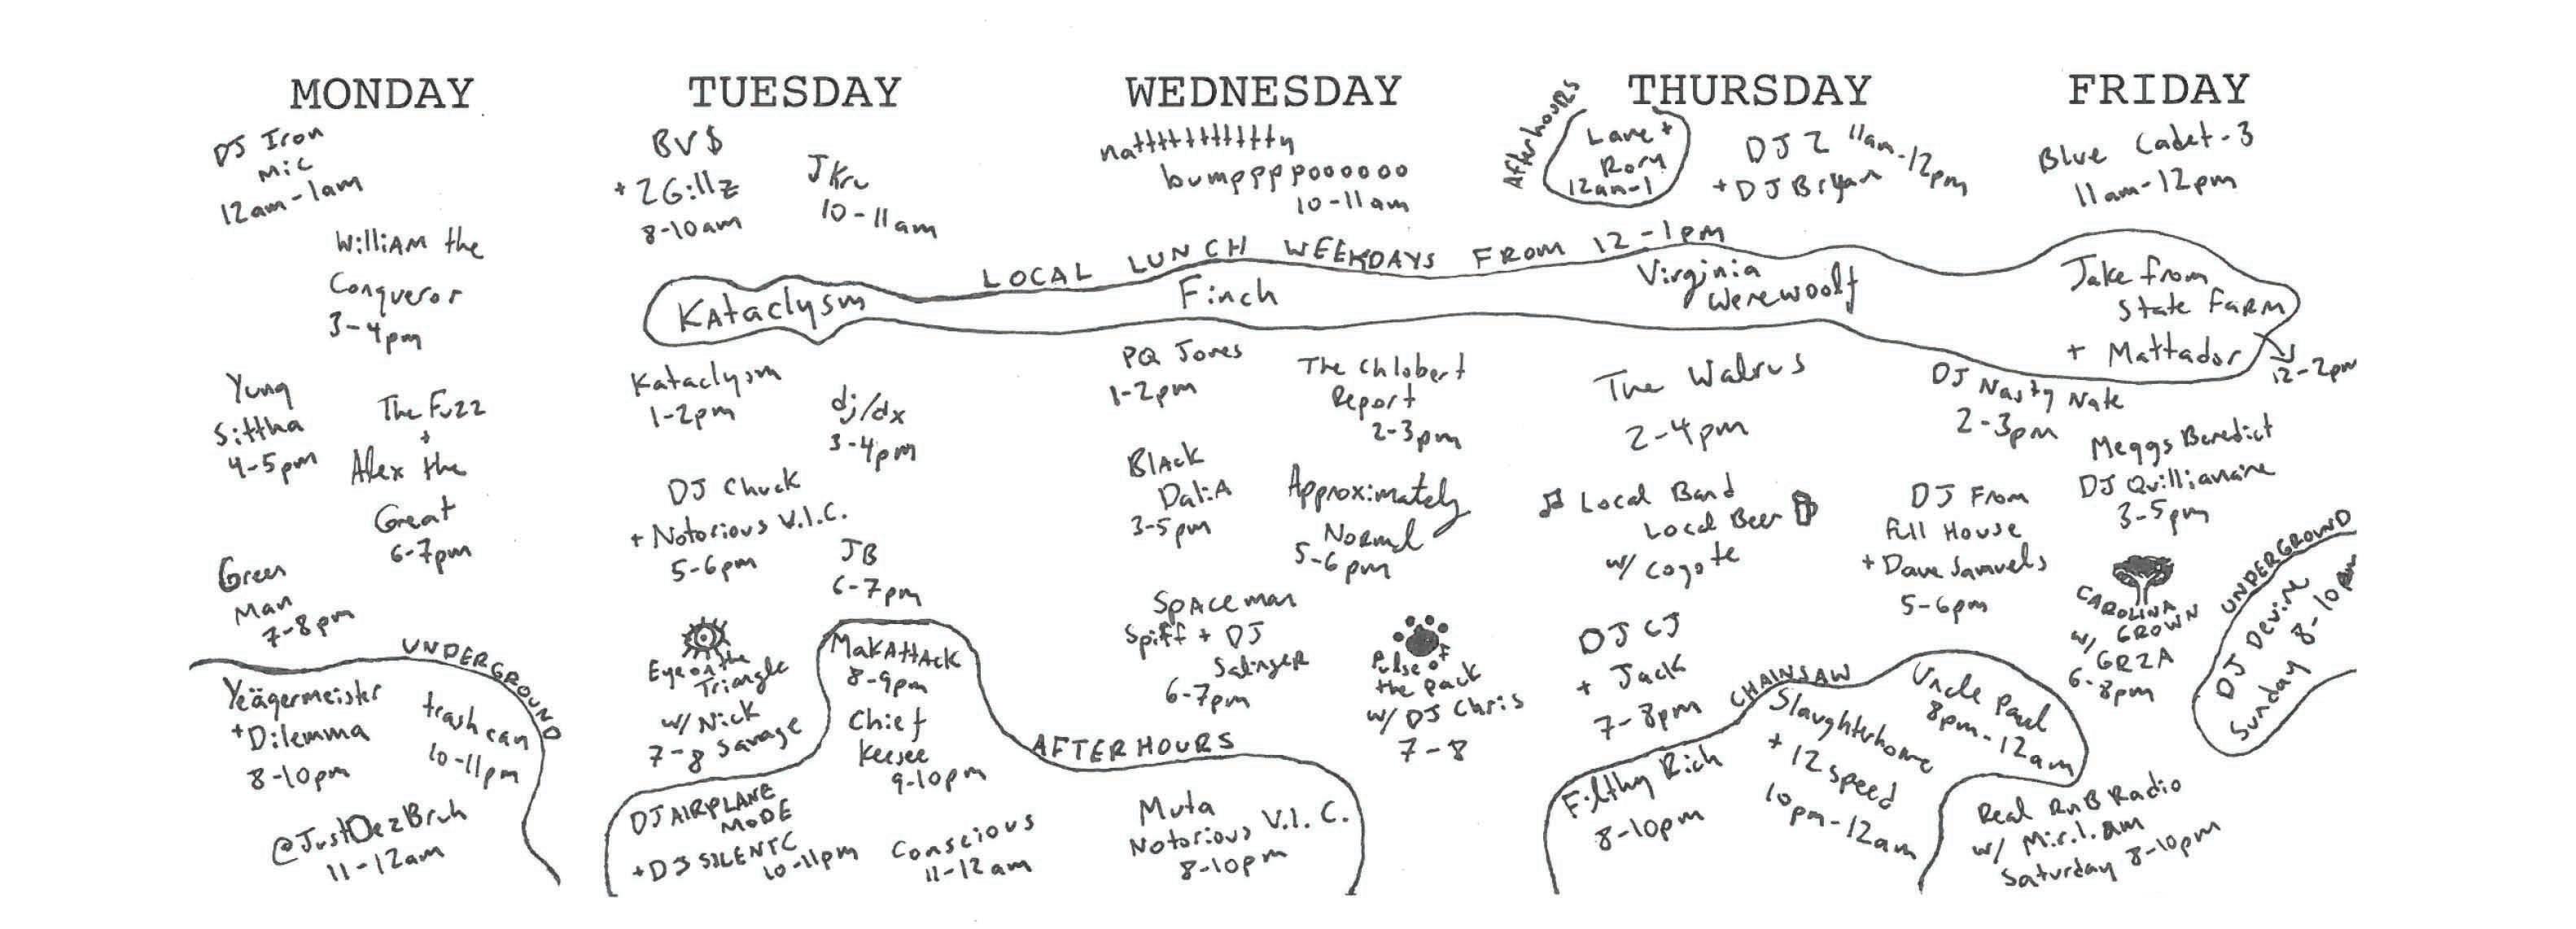 MONDAY
DJ Iron
Mic
12am-1am
William the
Conqueror
3-4pm
Yung
Sittha
4-5pm
The Fuzz
+
Alex the
Great
6-7pm
Green
Man
7-8pm
UNDERGROUND
Yeägermeister
+Dilemma
8-10pm
trashcan
10-11pm
@JustDezBruh
11-12am
TUESDAY
BV$
+ 2G:llz
8-10am
JKru
10-11am
LOCAL LUNCH WEEKDAYS FROM 12-1pm
Kataclysm
Kataclysm
1-2pm
dj/dx
3-4pm
DJ Chuck
+ Notorious V.I.C.
5-6pm
JB
6-7pm
Eye on the
Triangle
w/ Nick
7-8 Savage
MakAttAck
8-9pm
Chief
Keesee
9-10pm
AFTERHOURS
DJ AIRPLANE
MODE
+DJ SILENTC
10-11pm
Conscious
11-12am
WEDNESDAY
natttttttttttty
bumppppoooooo
10-11am
Finch
PQ Jones
1-2pm
The Chlobert
Report
2-3pm
Black
Dal:A
3-5pm
Approximately
Normal
5-6pm
Spaceman
Spiff + DJ
Salinger
6-7pm
Pulse of
the pack
w/ DJ Chris
7-8
Muta
Notorious V.I.C.
8-10pm
THURSDAY
Afterhours
Lane +
Rory
12am-1
DJ Z 11am-12pm
+ DJ Bryan
Virginia
Werewoolf
The Walrus
2-4pm
Local Band
Local Beer
w/ Coyote
DJ CJ
+ Jack
7-8pm
CHAINSAW
Filthy Rich
8-10pm
Slaughterhome
+ 12speed
10pm-12am
Uncle Paul
8pm-12am
FRIDAY
Blue Cadet-3
11am-12pm
Jake from
State FARM
+ Mattador
12-2pm
DJ Nasty Nate
2-3pm
Meggs Benedict
DJ Quillianaire
3-5pm
DJ From
Full House
+ Dave Samuels
5-6pm
CAROLINA
GROWN
w/ GRZA
6-8pm
UNDERGROUND
DJ Devine
Sunday 8-10pm
Real RnB Radio
w/ Mir.I.am
Saturday 8-10pm